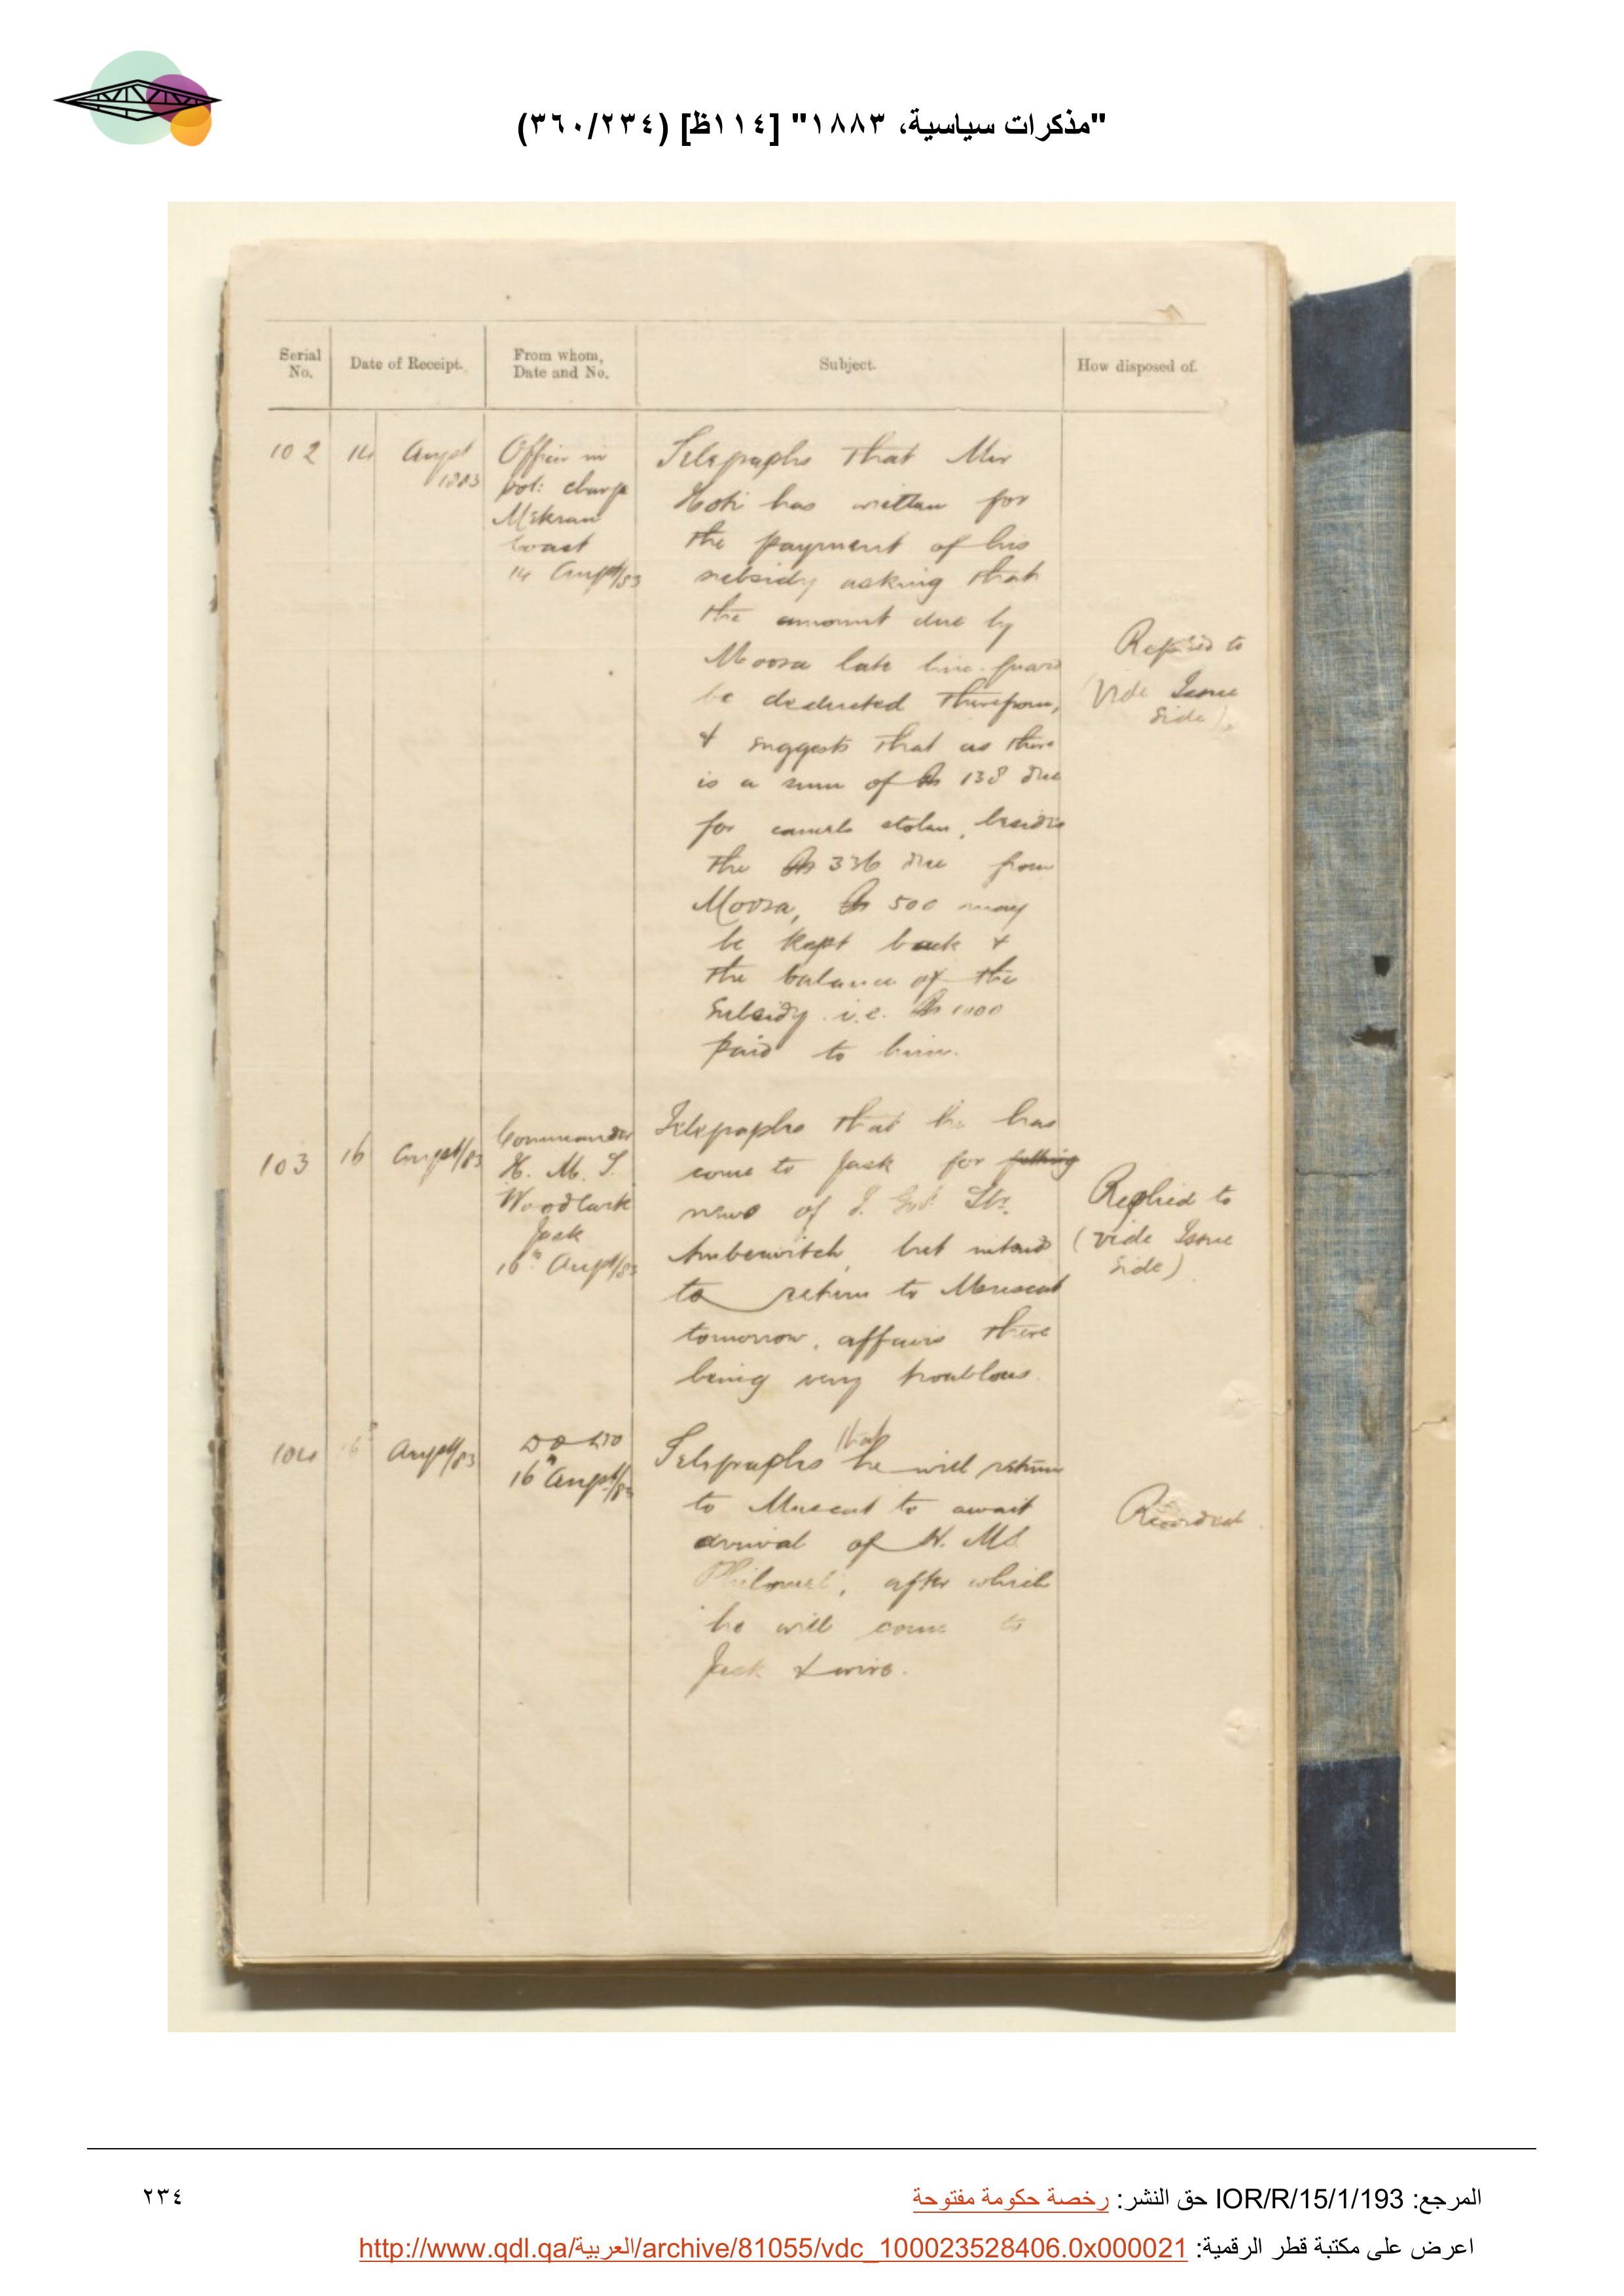 "مذكرات سياسية، ١٨٨٣" [١١٤ظ] (٣٦٠/٢٣٤)
Serial No.
Date of Receipt.
From whom, Date and No.
Subject.
How disposed of.
102
14 Augst 1883
Officer in
pol: charge
Mekran
Coast
14 Augst/83
Telegraphs that Mir
Hoti has written for
the payment of his
subsidy asking that
the amount due by
Moosa late line-guard
be deducted therefrom,
& suggests that as there
is a sum of Rs 138 due
for camels stolen, besides
the Rs 336 due from
Moosa, Rs 500 may
be kept back &
the balance of the
subsidy i.e. Rs 1000
paid to him.
to
(Vide Issue
Side).
103
16 Augst/83
Commander
H. M. S.
Woodlark
Jask
16th Augst/83
Telegraphs that he has
come to Jask for
news of I. Govt. Str.
Amberwitch, but intends
to return to Muscat
tomorrow, affairs there
being very troublous.
Replied to
(vide Issue
Side)
104
16th Augst/83
Do Do
16th Augst/83
Telegraphs that he will return
to Muscat to await
arrival of H. M S.
Philomel, after which
he will come to
Jask & wire.
Recorded.
المرجع: IOR/R/15/1/193 حق النشر: رخصة حكومة مفتوحة
٢٣٤
اعرض على مكتبة قطر الرقمية: http://www.qdl.qa/العربية/archive/81055/vdc_100023528406.0x000021